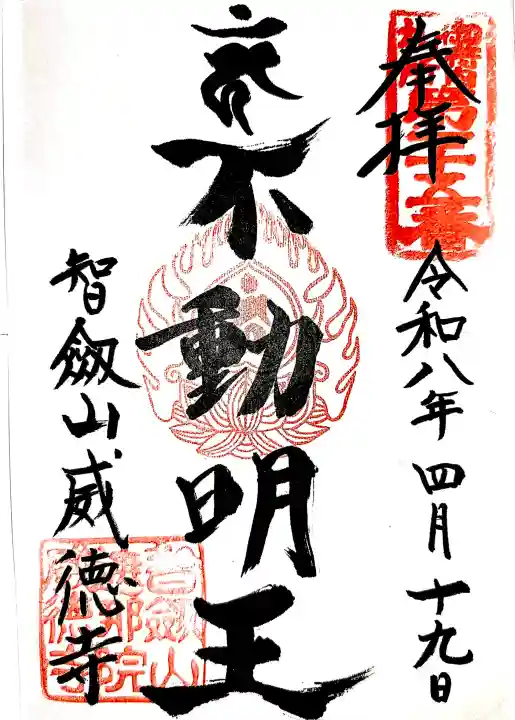 奉拝
令和八年 四月 十九日
不動明王
智劔山威徳寺